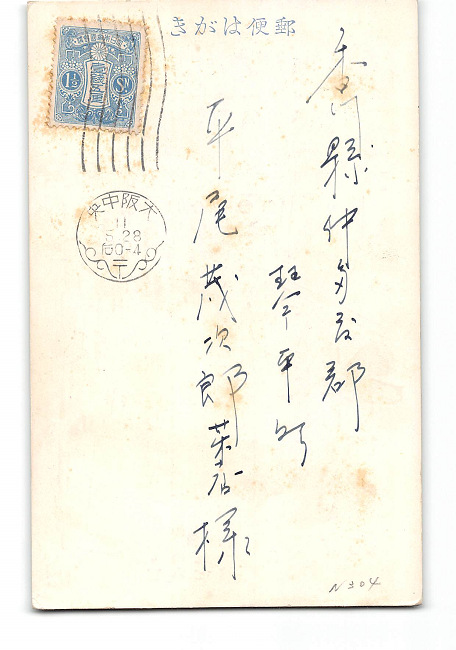 郵便はがき
香川縣仲多度郡
琴平町
平尾茂次郎葉店様
1½ Sn
大阪中央
11
5.28
后0-4
N304